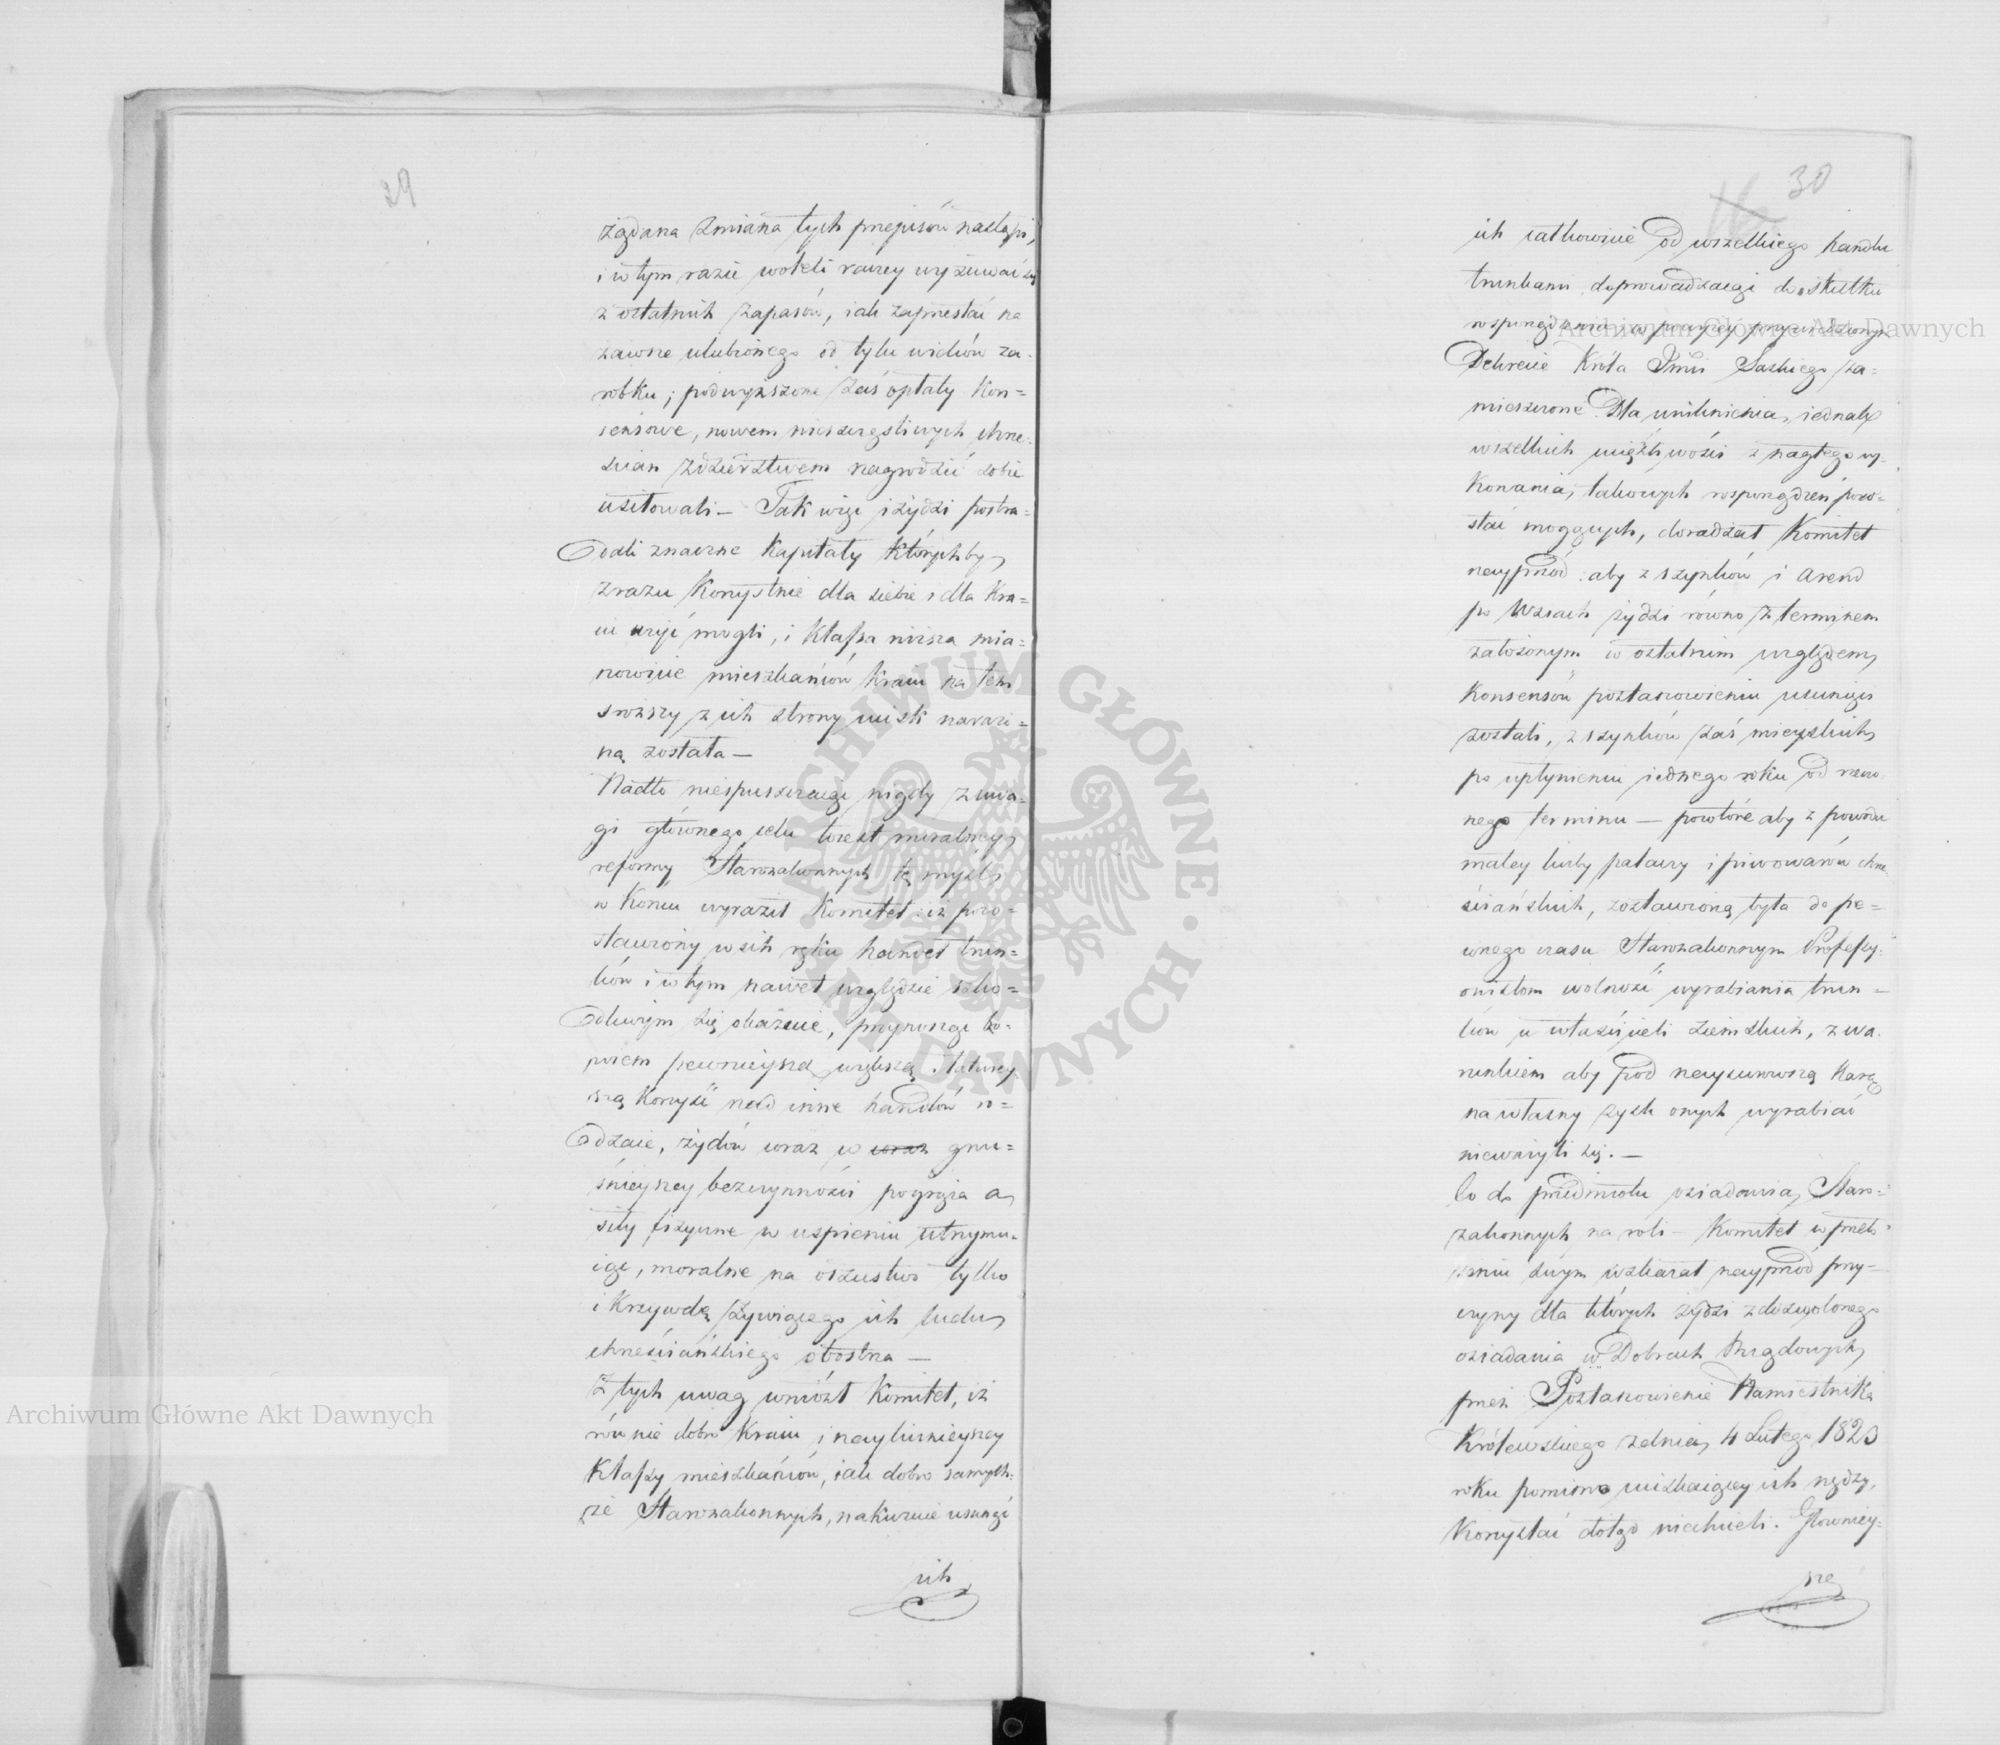 29
żądana zmiana tych przepisów nastąpi,
i w tym razie woleli raczey wyzuwać się
z ostatnich zapasów, iak zaprzestać na
zawsze ulubionego od tylu wieków za-
robku; podwyższone zaś opłaty kon=
sensowe, nowem nieszczęśliwych chrze-
ścian zdzierstwem nagrodzić sobie
usiłowali — Tak więc i żydzi postra=
dali znaczne kapitały którychby
zrazu korzystnie dla siebie i dla kra=
iu użyć mogli, i klassa niższa mia=
nowicie mieszkańców kraiu na tem
sroższy z ich strony ucisk narażo=
ną została —
Nadto niespuszczaiąc nigdy z uwa-
gi głównego celu to iest moralney
reformy Starozakonnych tę myśl
w końcu wyraził Komitet: iż pozo=
stawiony w ich ręku handel trun=
ków i w tym nawet względzie szko=
dliwym się okazuie, przynosząc bo-
wiem pewnieyszą, większą i łatwiey
szą korzyść nad inne handlów ro=
dzaie, żydów coraz w coraz gnu=
śnieyszey bezczynności pogrąża a
siły fizyczne w uspieniu utrzymu-
iąc, moralne na oszustwo tylko
i krzywdę żywiącego ich ludu
chrześciańskiego obostrza —
Z tych uwag wniósł Komitet, iż
równie dobro kraiu i naylicznieyszey
klassy mieszkańców, iak dobro samych-
że Starozakonnych, nakazuie usunąć
ich
16 30
ich całkowicie od wszelkiego handlu
trunkami doprowadzaiąc do skutku
rosporządzenia w powyżey przywiedzionym
Dekrecie Króla Jmci Saskiego za=
mieszczone. Dla uniknienia iednak
wszelkich uciążliwości z nagłego wy-
konania takowych rosporządzeń powo=
stać mogących, doradzał Komitet
nayprzód: aby z szynków i arend
po wsiach żydzi równo z terminem
założonym w ostatnim względem
konsensów postanowieniu usunięci
zostali, z szynków zaś mieyskich
po upłynieniu iednego roku od rzeczo-
nego terminu — powtóre aby z powodu
małey liczby palaczy i piwowarów chrze-
ściańskich, zostawioną była do pe=
wnego czasu Starozakonnym Professy-
onistom wolność wyrabiania trun=
ków u właścicieli ziemskich, z wa-
runkiem aby pod naysurowszą karą
na własny zysk onych wyrabiać
nieważyli się. —
Co do przedmiotu osiadania Staro=
zakonnych na roli — Komitet w przeło=
żeniu swym wskazał nayprzód przy=
czyny dla których żydzi z dozwolonego
osiadania w Dobrach Rządowych
przez Postanowienie Namiestnika
Królewskiego z dnia 4 Lutego 1823
roku pomimo uciskaiącey ich nędzy,
korzystać dotąd niechcieli. Głowniey-
sze
Archiwum Główne Akt Dawnych
Archiwum Główne Akt Dawnych
ARCHIWUM GŁÓWNE · AKT DAWNYCH ·